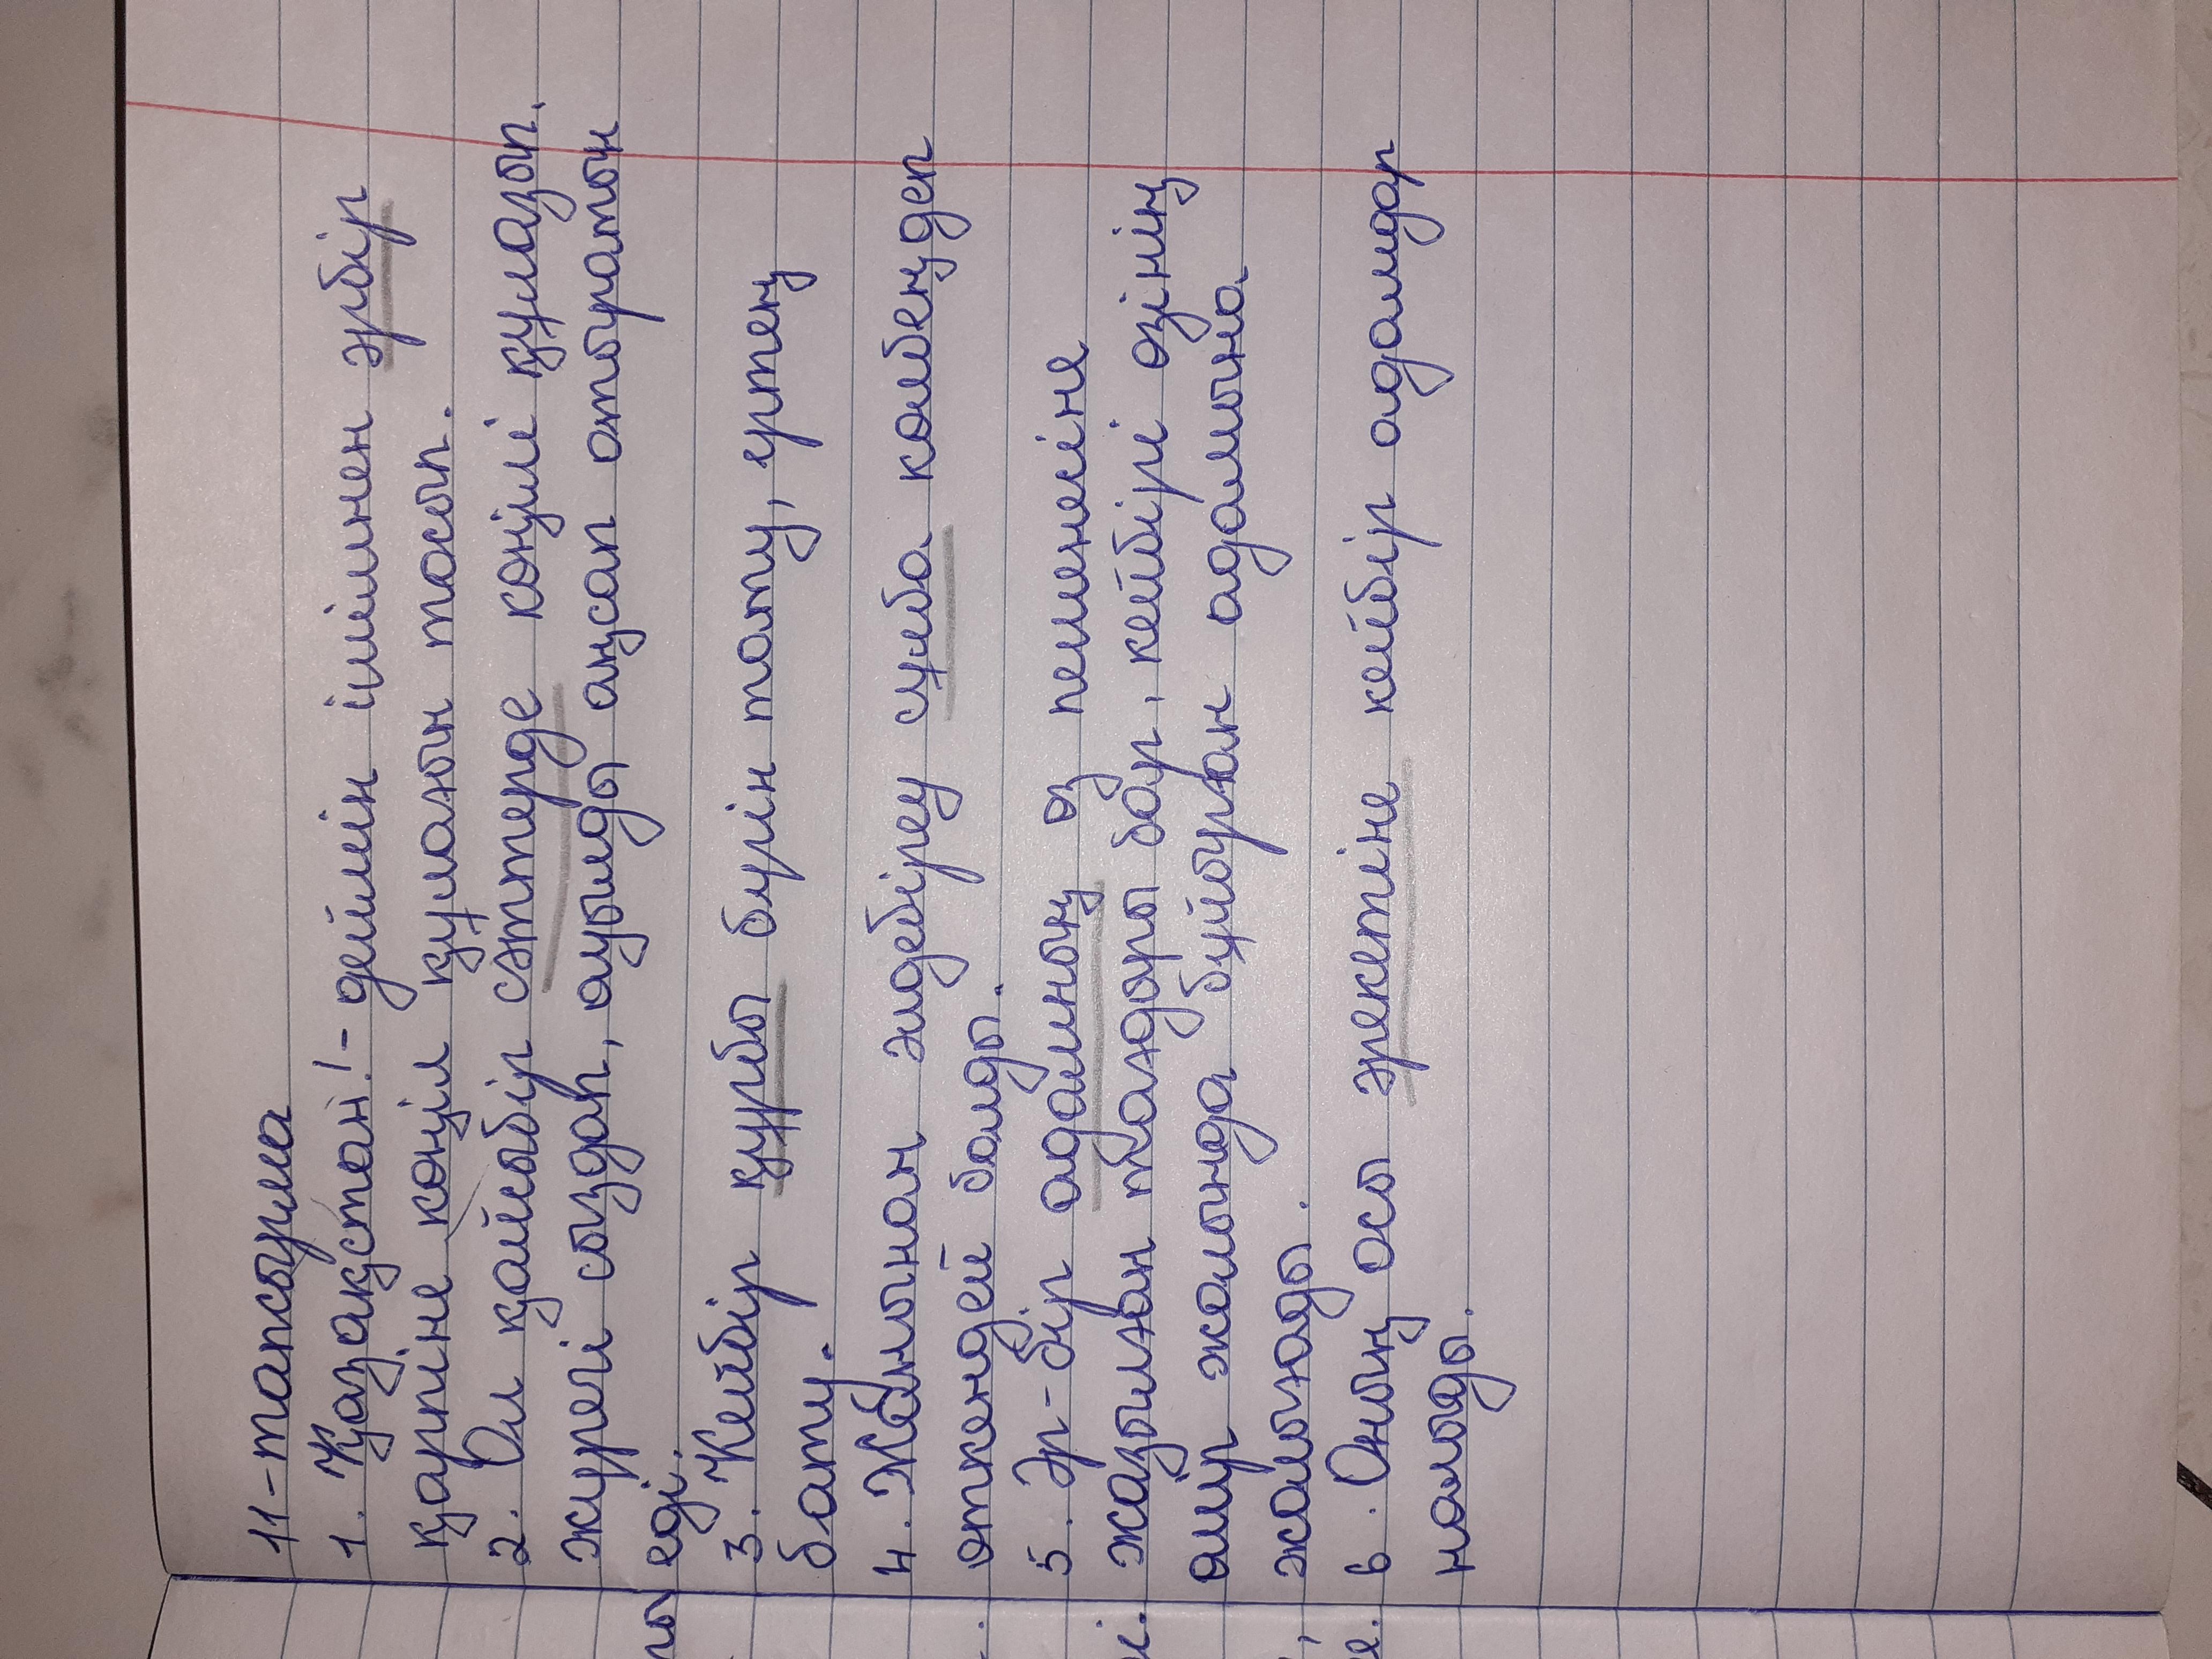 11-тапсырма
1. Қазақстан! - деймін ішімнен әрбір
қарпіне көңіл құлағын тосып.
2. Ол қайсыбір сәттерде көңілі құлазып.
жүрегі сыздап, ауылды аңсап отыратын
еді.
3. Кейбір құрбы бүгін тату, ертең
бату.
4. Жанынан әлдебіреу сұлба көлбеңдеп
өткендей болды.
5. Әр-бір адамның өз пешенесіне
жазылған тағдыры бар, кейбірі өзінің
өмір жолында бұйырған адамына
жолығады.
6. Оның осы әрекетіне кейбір адамдар
налыды.